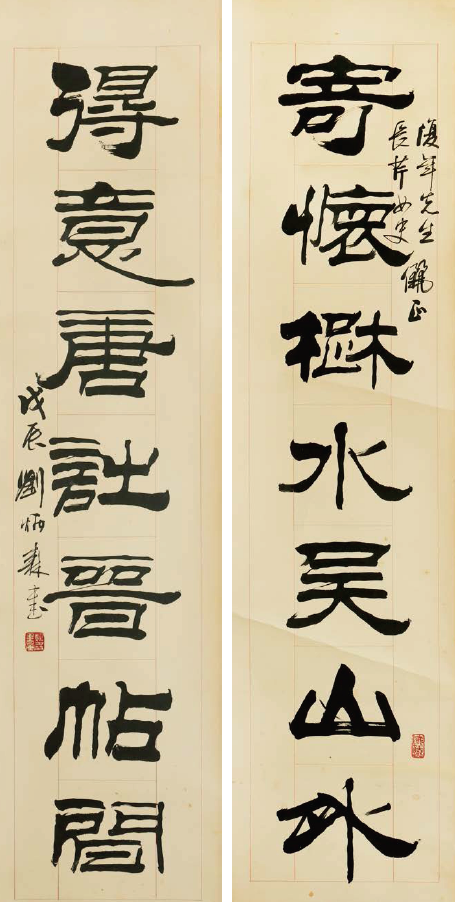 復年先生
長芹女史 儷正
寄懷楚水吳山外
得意唐詩晉帖間
戊辰劉炳森書